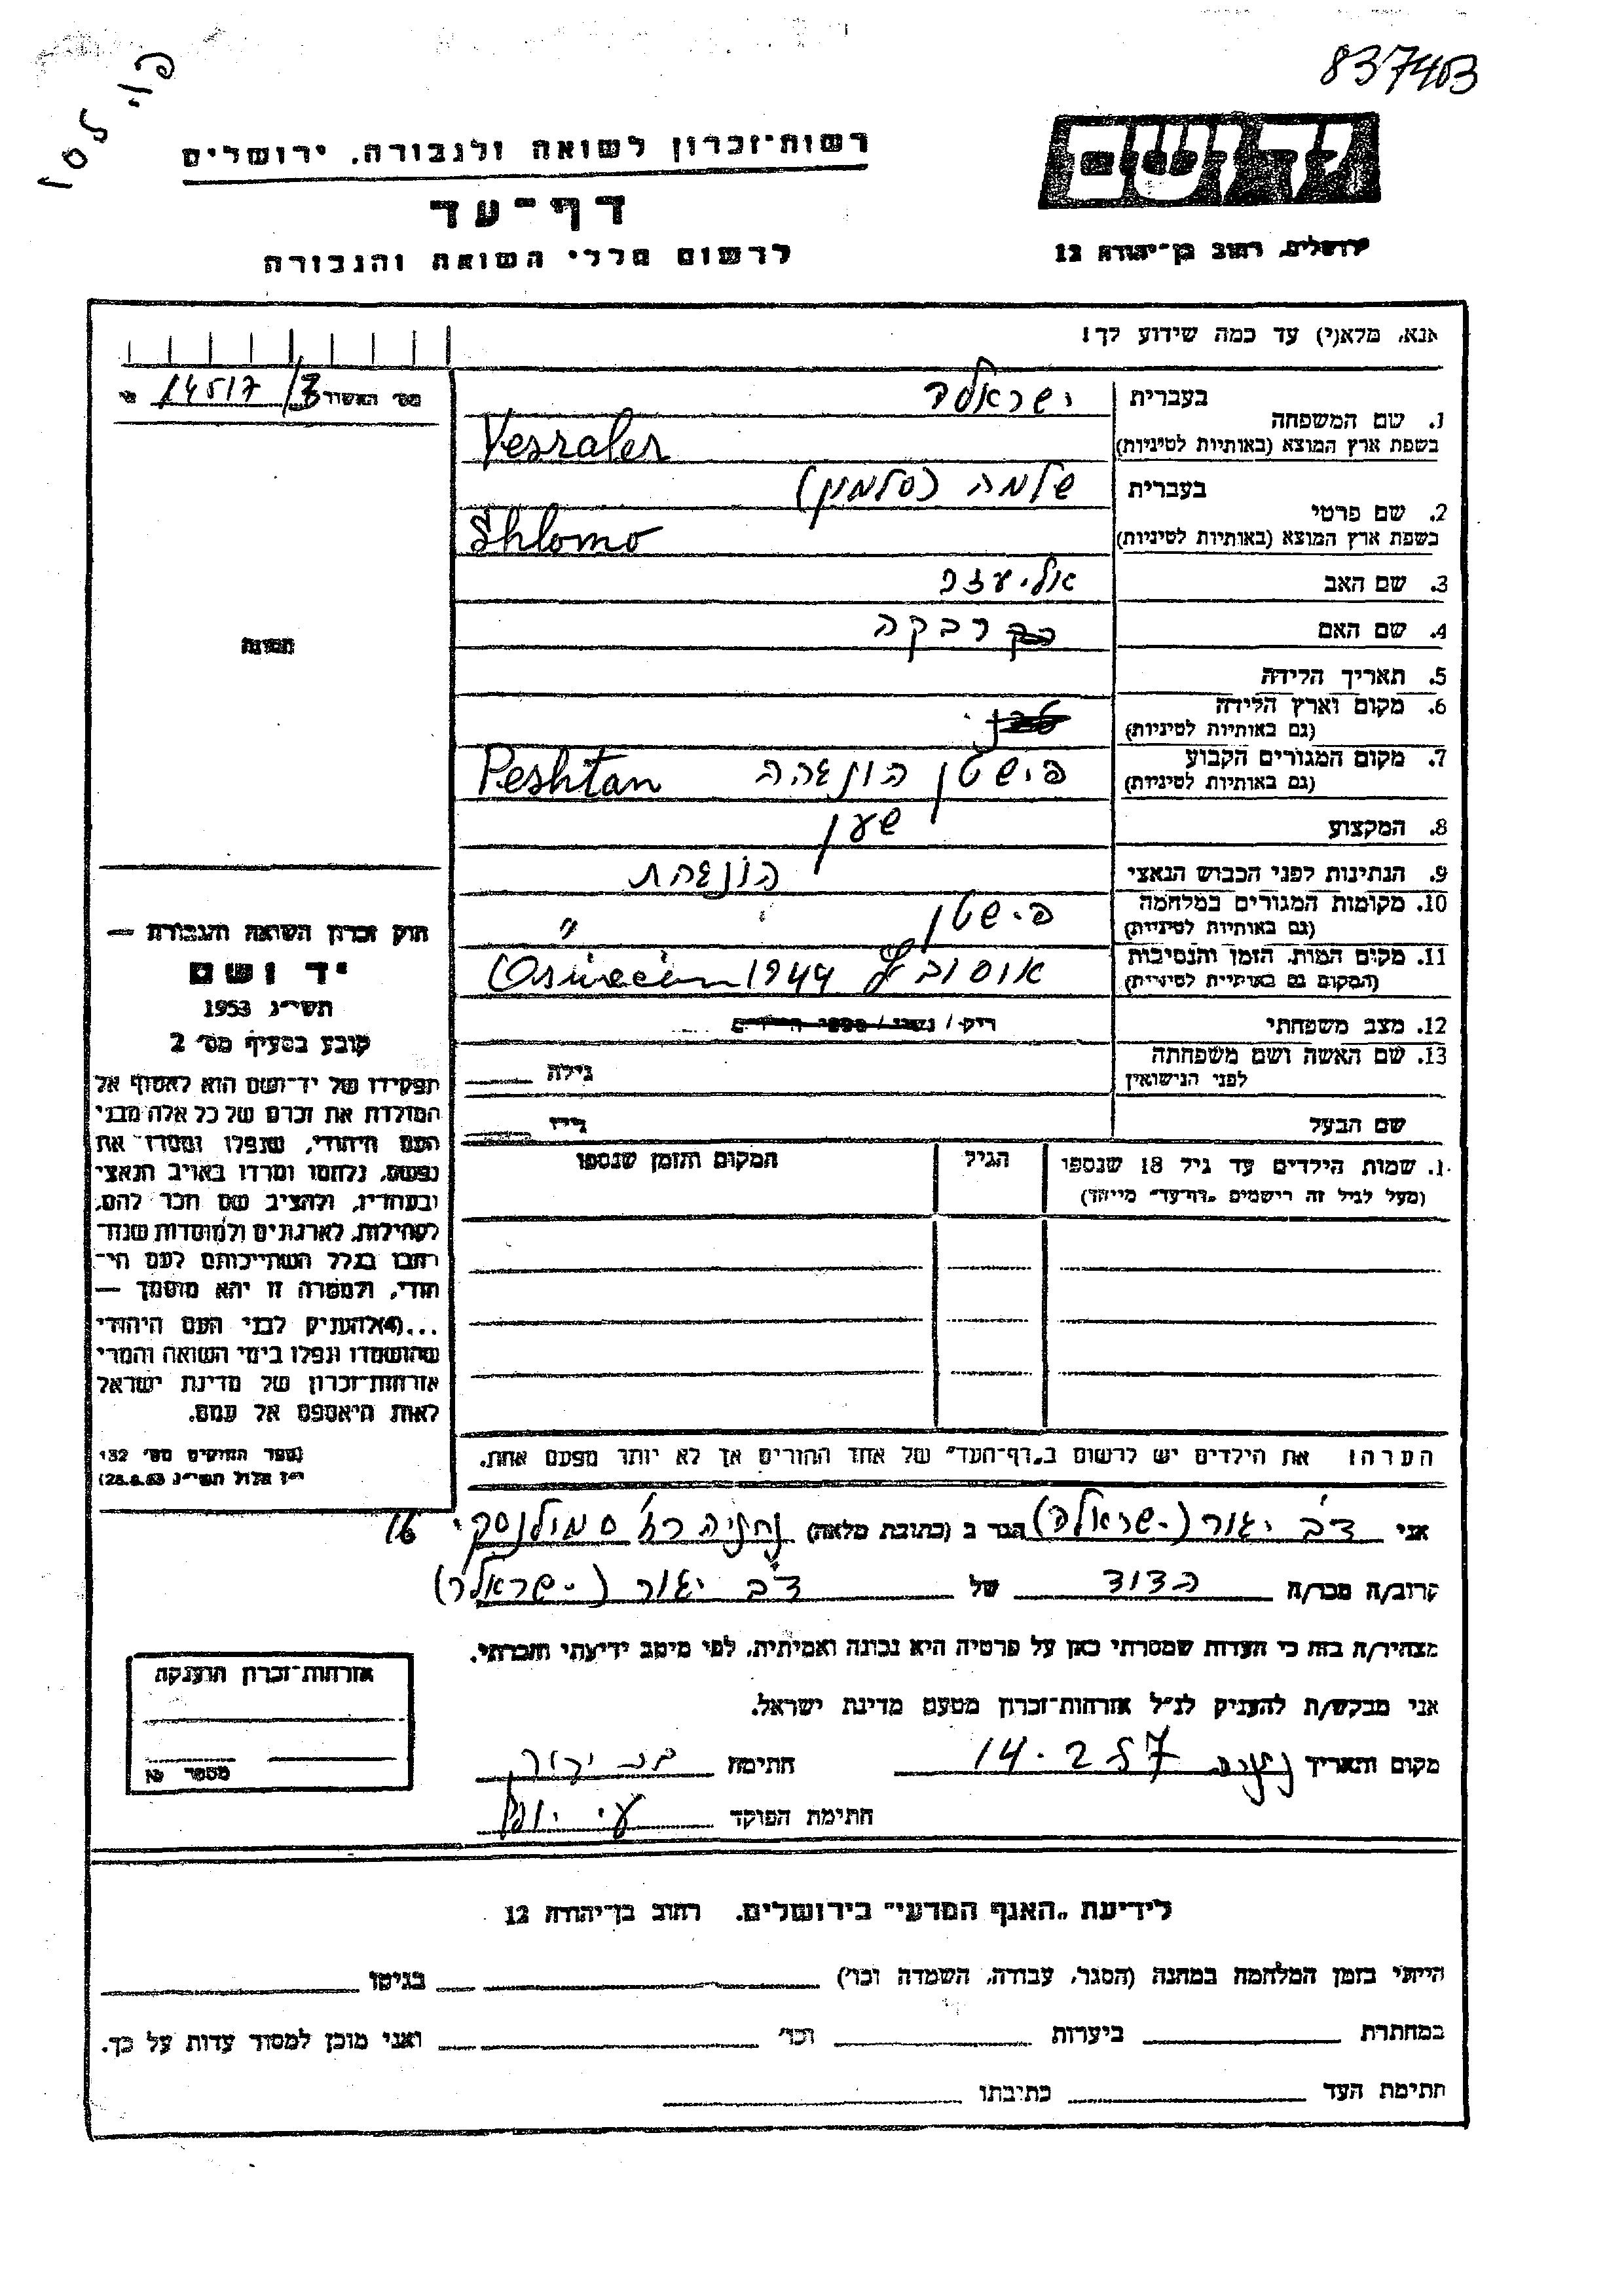 837403
רשות־זכרון לשואה ולגבורה, ירושלים
דף־עד
לרשום חללי השואה והגבורה
ידושם
ירושלים, רחוב בן־יהודה 12
אנא, מלא(י) עד כמה שידוע לך!
מס׳ האשור 14517/3
1. שם המשפחה
בעברית ישראלר
בשפת ארץ המוצא (באותיות לטיניות) Yesraler
2. שם פרטי
בעברית שלמה (סלמון)
בשפת ארץ המוצא (באותיות לטיניות) Shlomo
3. שם האב אליעזר
4. שם האם רבקה
5. תאריך הלידה
6. מקום וארץ הלידה
(גם באותיות לטיניות)
7. מקום המגורים הקבוע פישטן הונגריה Peshtan
(גם באותיות לטיניות)
8. המקצוע שען
9. הנתינות לפני הכבוש הנאצי הונגרית
10. מקומות המגורים במלחמה פישטן " "
(גם באותיות לטיניות)
11. מקום המות, הזמן והנסיבות 1944
(המקום גם באותיות לטיניות)
12. מצב משפחתי רוק / נשוי /
13. שם האשה ושם משפחתה גילה
לפני הנישואין
שם הבעל גילו
שמות הילדים עד גיל 18 שנספו הגיל המקום והזמן שנספו
(מעל לגיל זה רישמים „דף־עד" מיוחד)
הערה: את הילדים יש לרשום ב„דף־העד" של אחד ההורים אך לא יותר מפעם אחת.
תמונה
חוק זכרון השואה והגבורה —
יד ושם
תשי״ג 1953
קובע בסעיף מס׳ 2
תפקידו של יד־ושם הוא לאסוף אל
המולדת את זכרם של כל אלה מבני
העם היהודי, שנפלו ומסרו את
נפשם, נלחמו ומרדו באויב הנאצי
ובעוזריו, ולהציב שם וזכר להם,
לקהילות, לארגונים ולמוסדות שנח־
רבו בגלל השתייכותם לעם היי־
הודי, ולמטרה זו יהא מוסמך —
...(4)להעניק לבני העם היהודי
שהושמדו ונפלו בימי השואה והמרי
אזרחות־זכרון של מדינת ישראל
לאות היאספם אל עמם.
(ספר החוקים מס׳ 132
י״ז אלול תשי״ג 28.8.53)
אני דב יגור (ישראלר) הגר ב (כתובת מלאה) נתניה רח׳ סמולנסקי 16
קרוב/ה מכר/ה הדוד של דב יגור (ישראלר)
מצהיר/ה בזה כי העדות שמסרתי כאן על פרטיה היא נכונה ואמיתית, לפי מיטב ידיעתי והכרתי.
אני מבקש/ת להעניק לנ״ל אזרחות־זכרון מטעם מדינת ישראל.
מקום ותאריך נתניה 14.2.57 חתימה
חתימת הפוקד
אזרחות־זכרון הוענקה
מספר
לידיעת „האגף המדעי" בירושלים, רחוב בן־יהודה 12
הייתי בזמן המלחמה במחנה (הסגר, עבודה, השמדה וכו׳) בגיטו
במחתרת ביערות וכו׳ ואני מוכן למסור עדות על כך.
חתימת העד כתיבתו